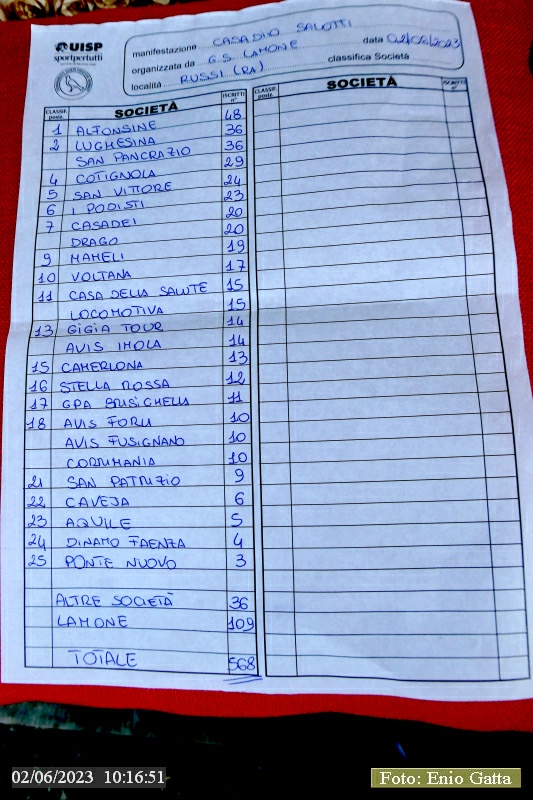 UISP
sportpertutti
manifestazione CASADIO SALOTTI
organizzata da G.S. LAMONE data 02/06/2023
località RUSSI (RA) classifica Società
CLASSIF. posto SOCIETÀ ISCRITTI n°
CLASSIF. posto SOCIETÀ ISCRITTI n°
1 ALFONSINE 48
2 LUGHESINA 36
SAN PANCRAZIO 36
4 COTIGNOLA 29
5 SAN VITTORE 24
6 I PODISTI 23
7 CASADEI 20
DRAGO 20
9 MAMELI 19
10 VOLTANA 17
11 CASA DELLA SALUTE 15
LOCOMOTIVA 15
13 GIGIA TOUR 14
AVIS IMOLA 14
15 CAMERLONA 13
16 STELLA ROSSA 12
17 GPA BRISIGHELLA 11
18 AVIS FORLI 10
AVIS FUSIGNANO 10
CORRIMANIA 10
21 SAN PATRIZIO 9
22 CAVEJA 6
23 AQUILE 5
24 DINAMO FAENZA 4
25 PONTE NUOVO 3
ALTRE SOCIETÀ 36
LAMONE 109
TOTALE 568
02/06/2023 10:16:51
Foto: Enio Gatta